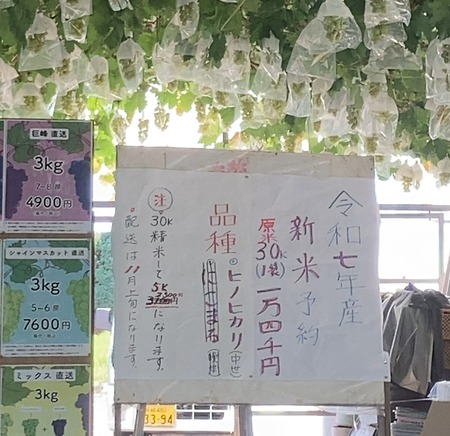 巨峰 直送
3kg
7~8房
4900円
シャインマスカット 直送
3kg
5~6房
7600円
ミックス 直送
3kg
令和七年産
新米予約
原米30K(1袋)一万四千円
品種 ヒノヒカリ(中世)
注 30K精米して5K
になります。
配送は11月上旬になります。
33-94